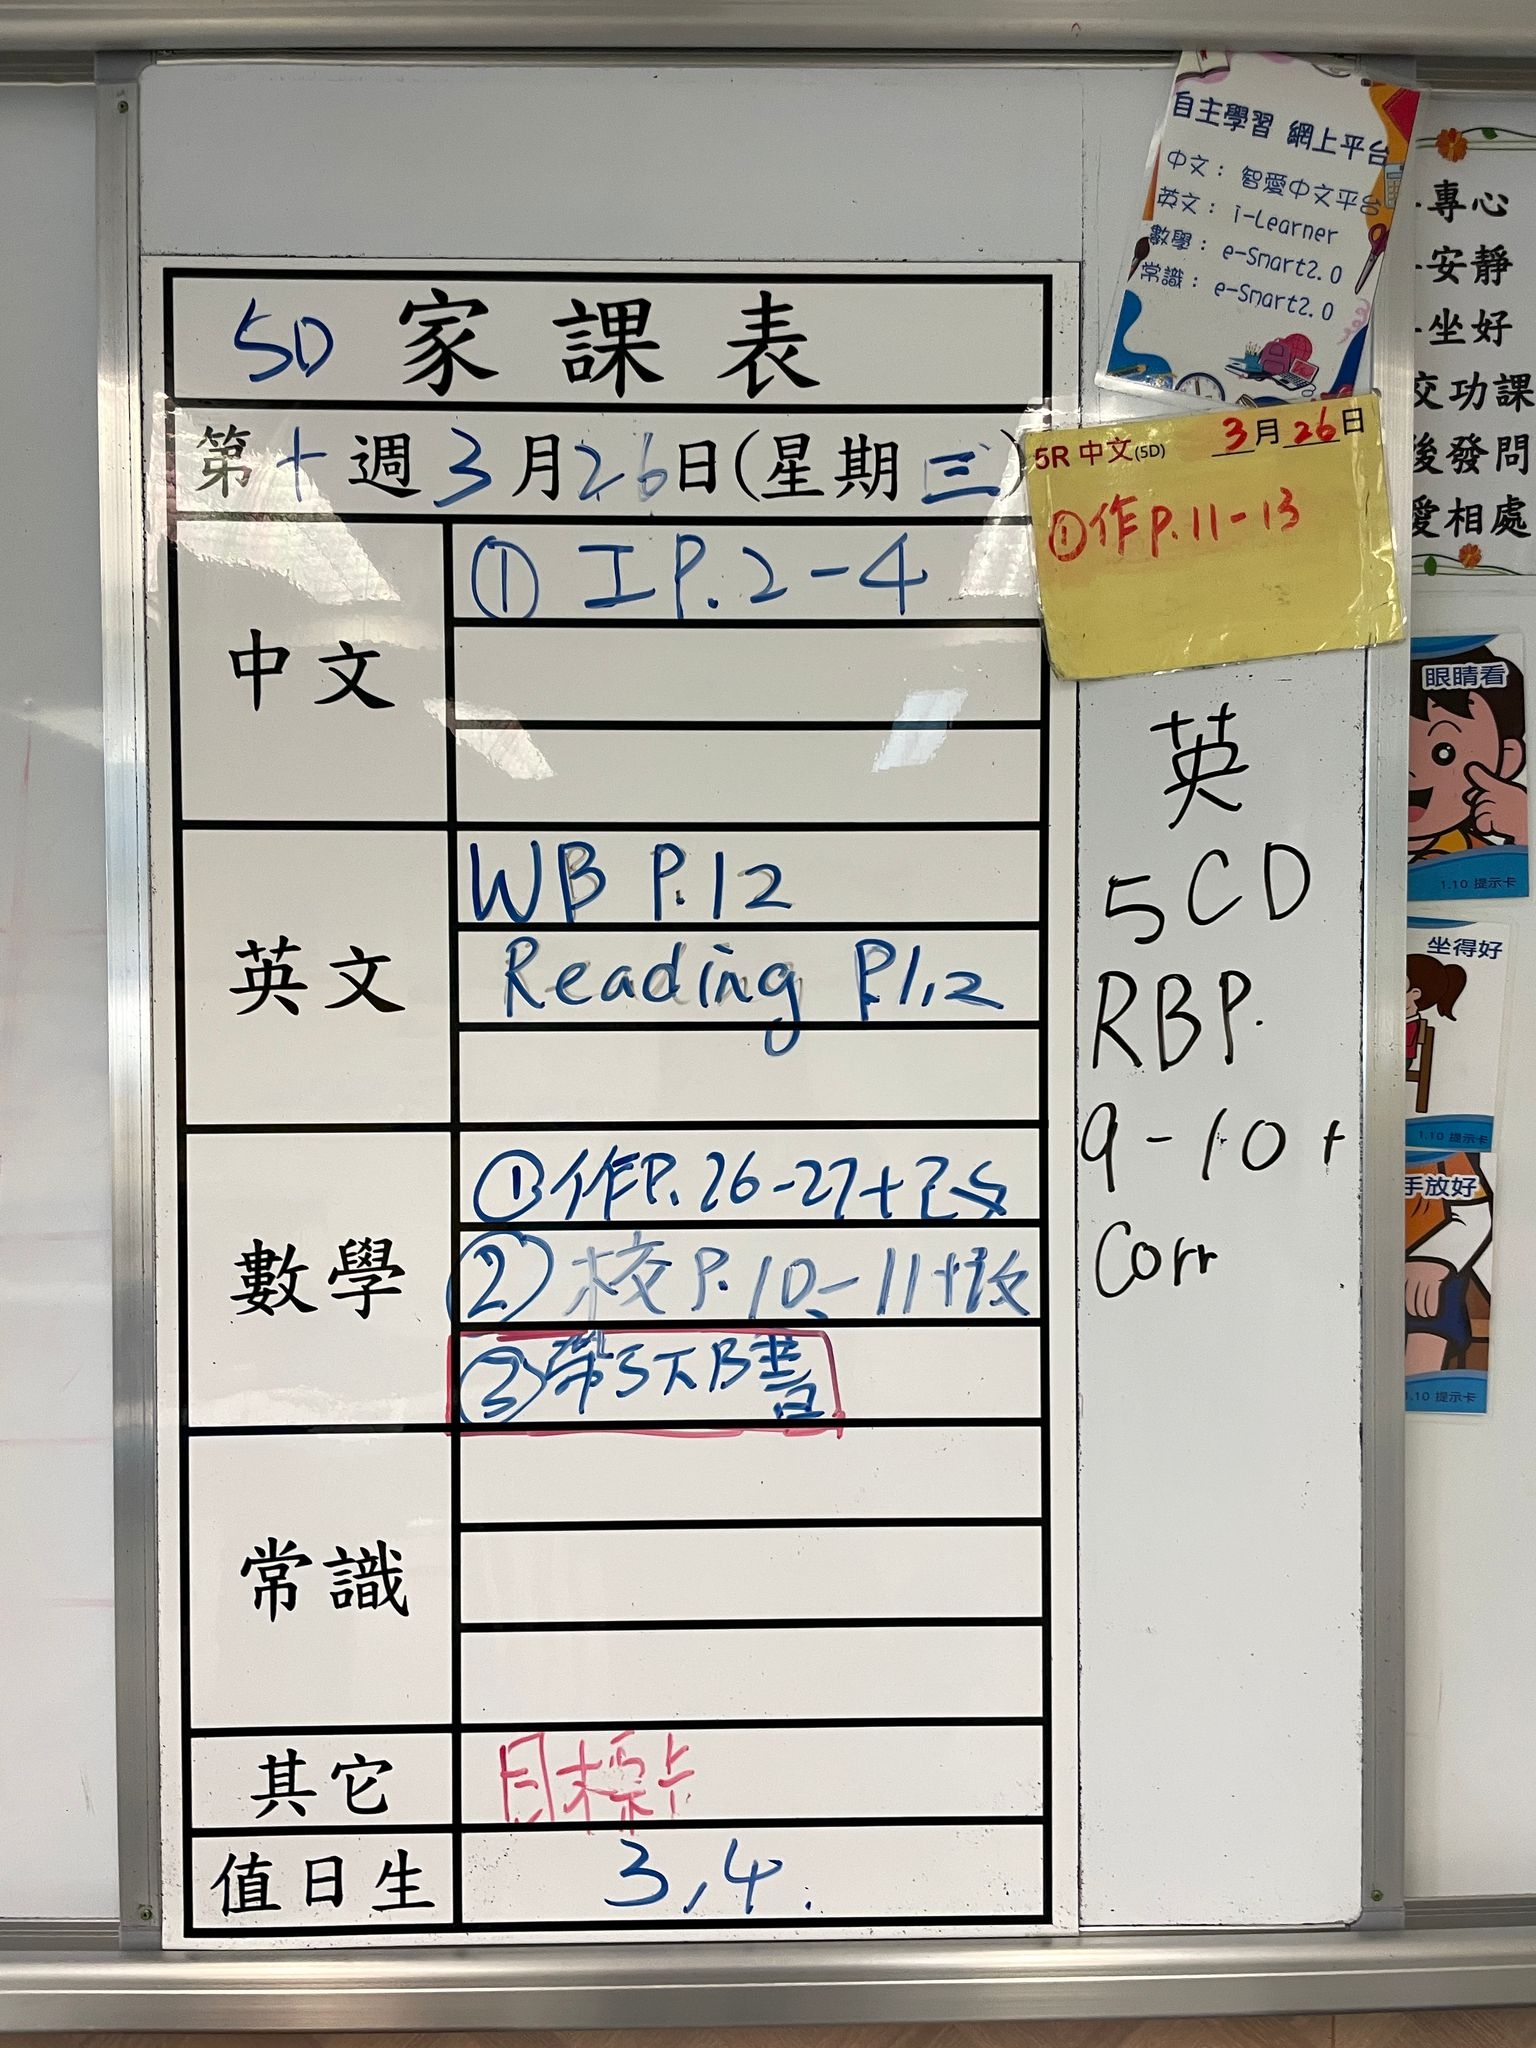 自主學習 網上平台
中文：智愛中文平台
英文：i-Learner
數學：e-Smart2.0
常識：e-Smart2.0
專心
安靜
坐好
交功課
後發問
愛相處
5D 家課表
第十週3月26日(星期三)
5R 中文(5D) 3月26日
①作P.11-13
中文
① 工P.2-4
英文
WB P.12
Reading P.1,2
數學
①作P.26-27+改
②校P.10-11+改
③帶5下B書
常識
其它
目標卡
值日生
3,4.
英
5CD
RBP.
9-10+
Corr
眼睛看
1.10 提示卡
坐得好
1.10 提示卡
手放好
1.10 提示卡